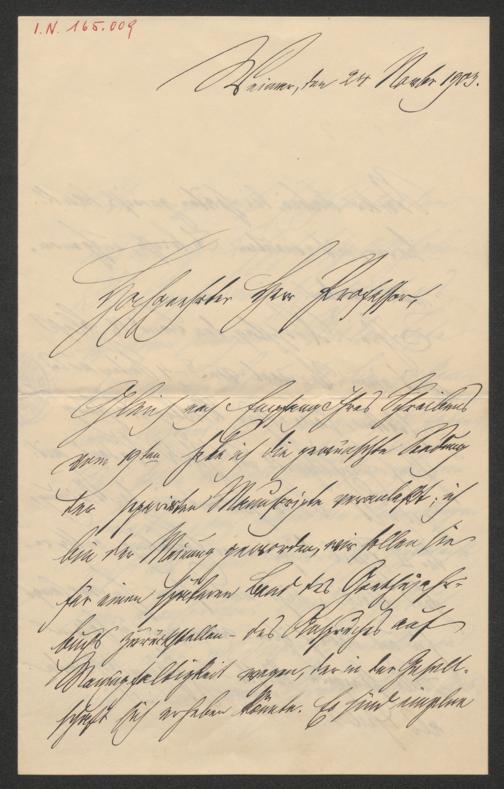 I.N. 165.009
Weimar, den 24 Novbr 1903.
Hochgeehrter Herr Professor,
Gleich nach Empfang Ihres Schreibens
vom 19ten habe ich die gewünschte Sendung
der Manuskripte veranlaßt; ich
bin der Meinung geworden, wir sollen sie
für einen späteren Band des Goethejahr-
buchs zurückstellen - des Anspruches auf
Mannigfaltigkeit wegen, der in der Gesell-
schaft sich erheben könnte. Es sind einzelne